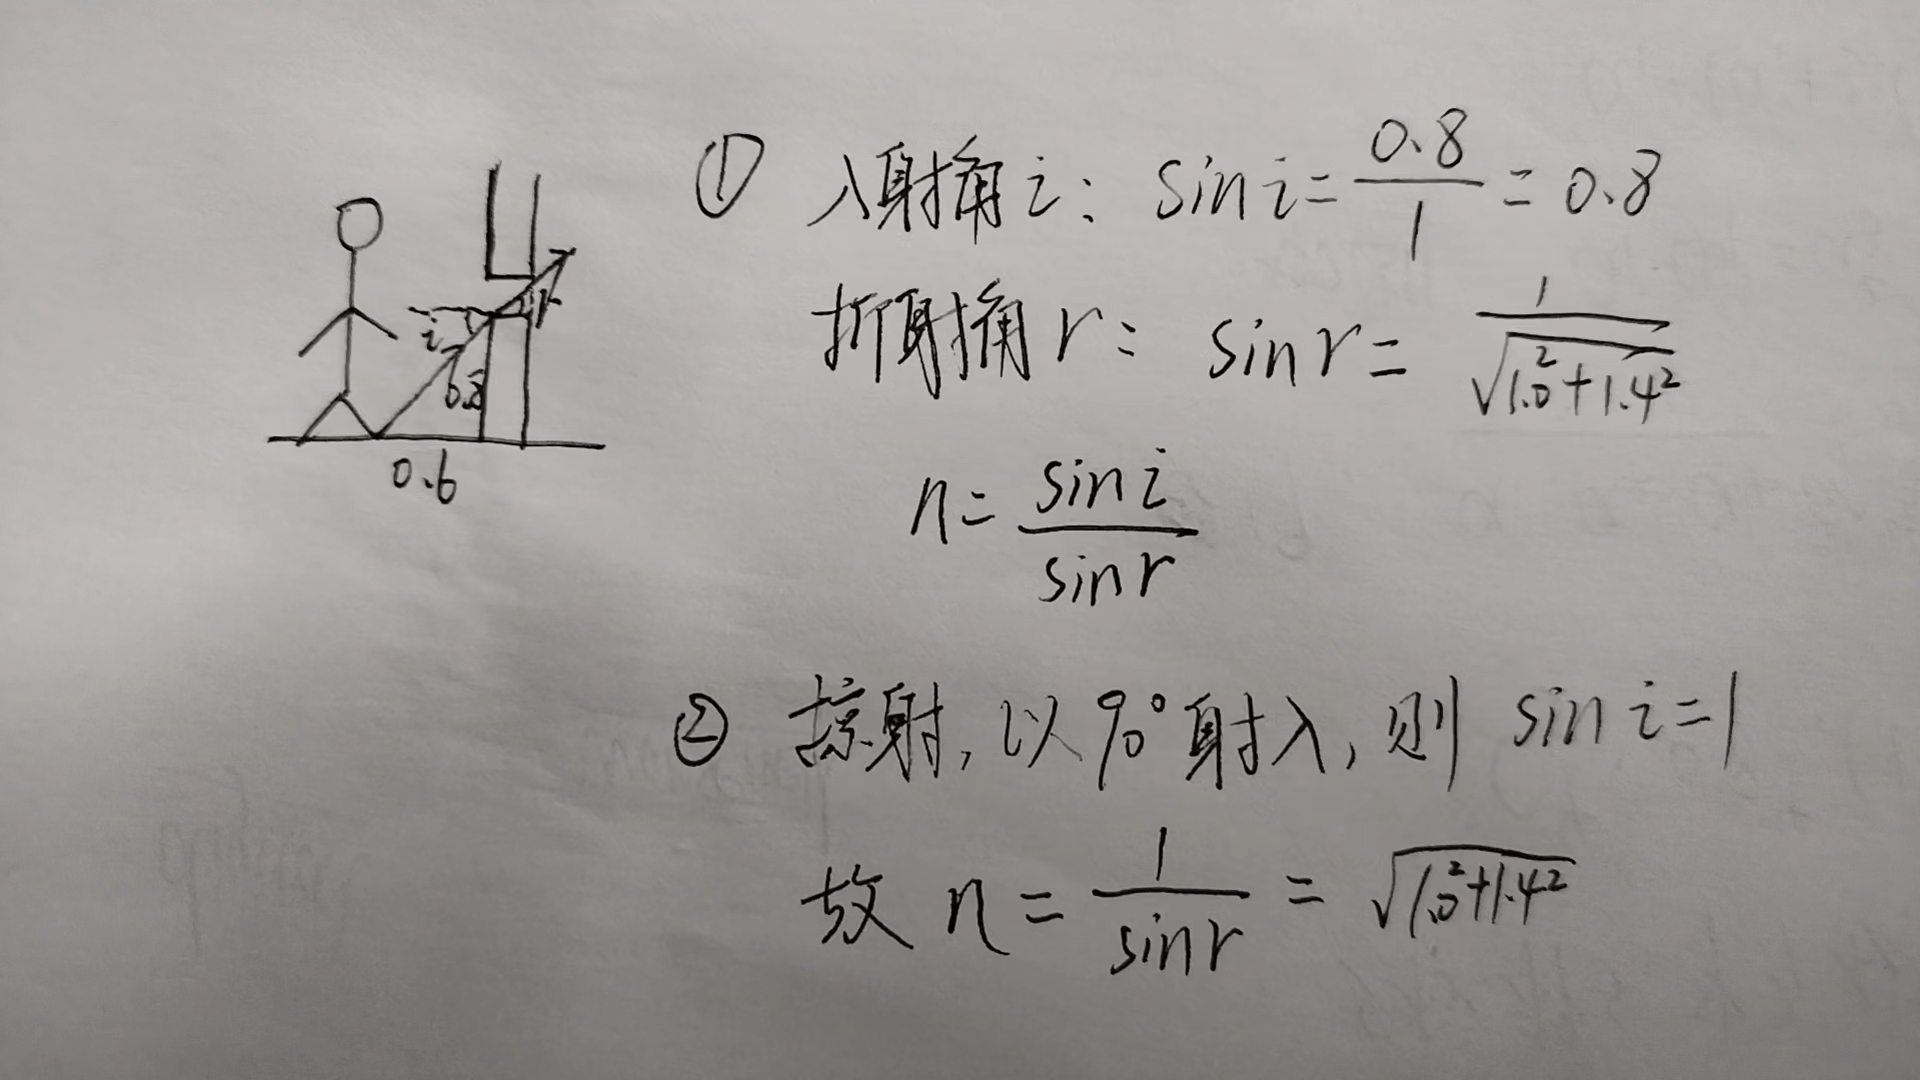 ① 入射角 i: sin i = 0.8/1 = 0.8
折射角 r: sin r = 1/√(1.0²+1.4²)
i r
0.8
0.6
n = sin i / sin r
② 掠射, 以90°射入, 则 sin i = 1
故 n = 1/sin r = √(1.0²+1.4²)